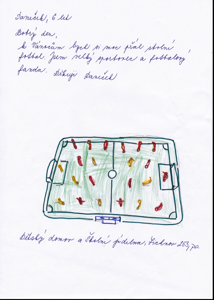 Daneček, 6 let
Dobrý den,
k Vánocům bych si moc přál stolní
fotbal. Jsem velký sportovec a fotbalový
fanda. Děkuji Daneček
Dětský domov a Školní jídelna,